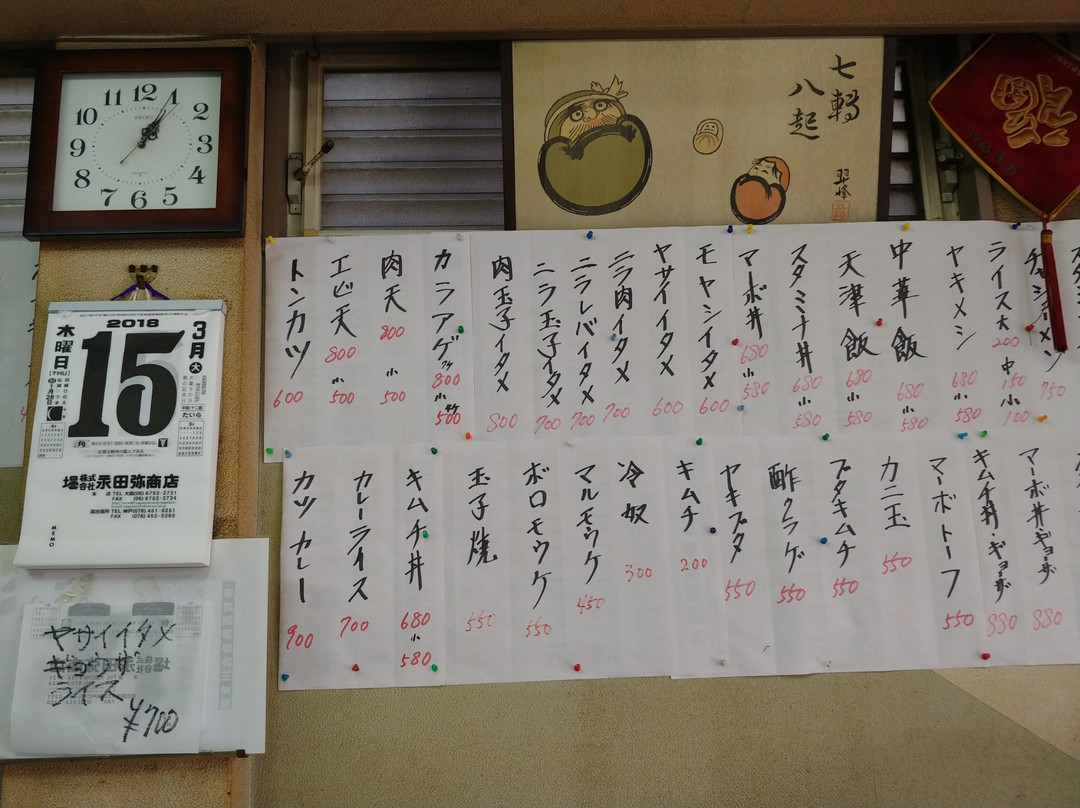 12
1
2
3
4
5
6
7
8
9
10
11
SEIKO
QUARTZ
七轉
八起
2018
3月大
15
木曜日
[THU]
1月28日
たいら
株式会社
堀永田弥商店
本店 TEL 大阪(06) 6762-2731
FAX (06) 6762-2734
TEL 神戸(078) 451-0251
FAX (078) 452-0260
MEMO
ヤサイイタメ
ギョウザ
ライス
¥700
チャシューメン
750
ライス大 200 中 150 小 100
ヤキメシ
680 小 580
中華飯
680 小 580
天津飯
680 小 580
スタミナ丼
680 小 580
マーボ丼
680 小 580
モヤシイタメ
600
ヤサイイタメ
600
ニラ肉イタメ
700
ニラレバイタメ
700
ニラ玉子イタメ
700
肉玉子イタメ
800
カラアゲ
800 小 500
肉天
800 小 500
エビ天
800 小 500
トンカツ
600
マーボ丼・ギョーザ
880
キムチ丼・ギョーザ
880
マーボトーフ
550
カニ玉
550
ブタキムチ
550
酢クラゲ
550
ヤキブタ
550
キムチ
200
冷奴
300
マルモウケ
450
ボロモウケ
550
玉子焼
550
キムチ丼
680 小 580
カレーライス
700
カツカレー
900